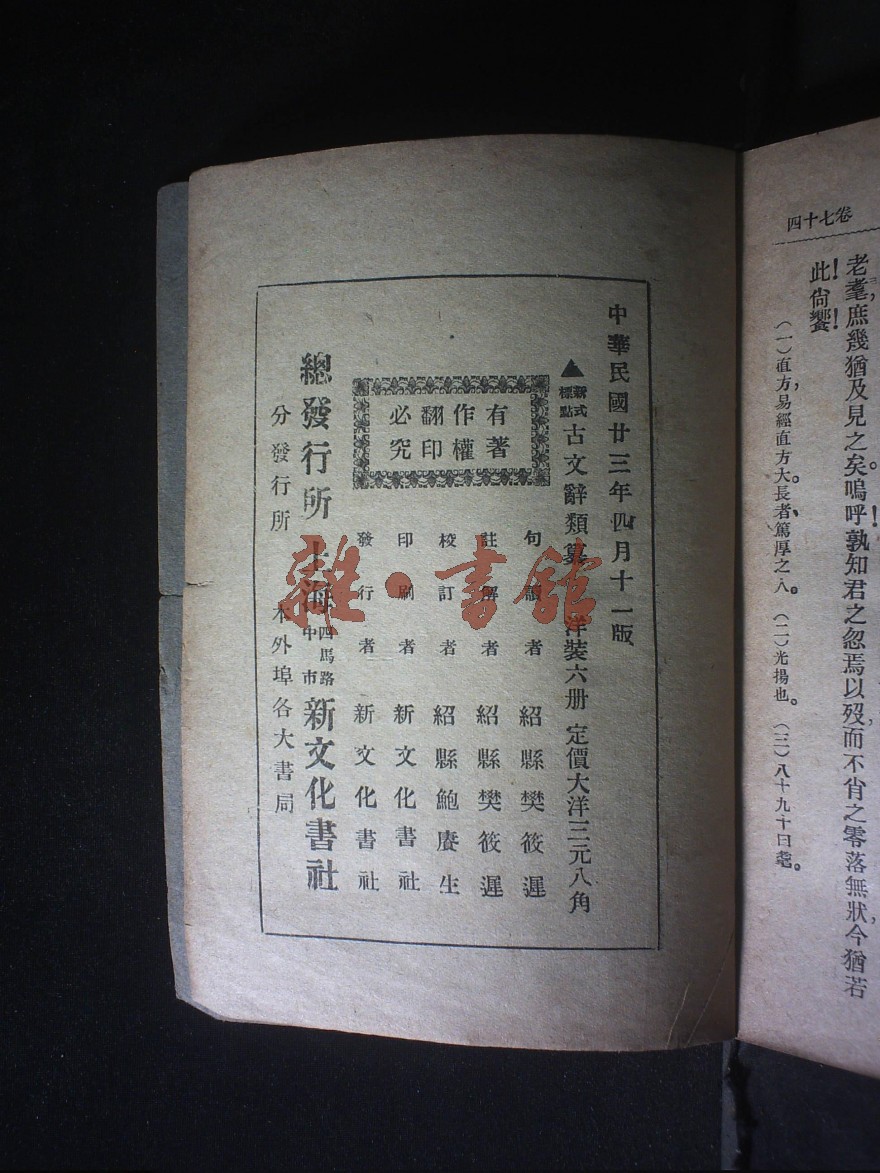 四十七卷
老耄，庶幾猶及見之矣。嗚呼！孰知君之忽焉以歿，而不肖之零落無狀，今猶若
此！尙饗！
（一）直方，易經直方大。長者，篤厚之人。（二）光揚也。（三）八十九十曰耄。
中華民國廿三年四月十一版
▲新式標點古文辭類纂 洋裝六册 定價大洋三元八角
有著作權
翻印必究
句讀者 紹縣樊筱遲
註解者 紹縣樊筱遲
校訂者 紹縣鮑賡生
印刷者 新文化書社
發行者 新文化書社
總發行所 上海四馬路中市 新文化書社
分發行所 本外埠各大書局
雜·書館